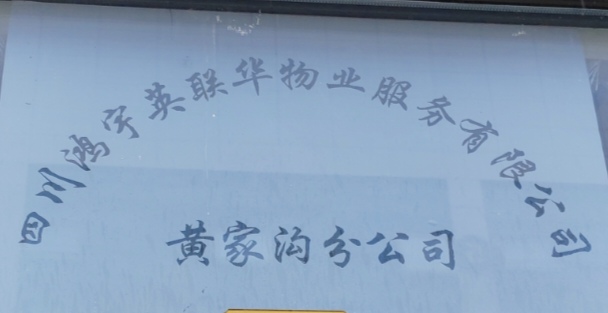 四川鸿宇英联华物业服务有限公司
黄家沟分公司